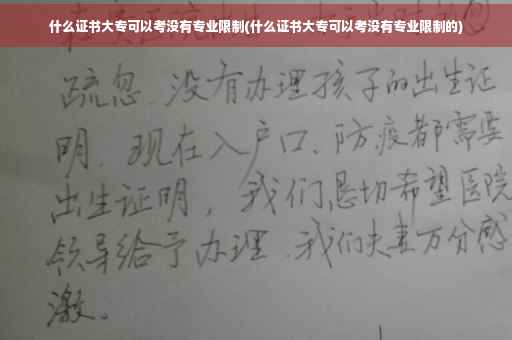 什么证书大专可以考没有专业限制(什么证书大专可以考没有专业限制的)
疏忽.没有办理孩子的出生证
明.现在入户口、防疫都需要
出生证明，我们恳切希望医院
领导给予办理.我们夫妻万分感
激。